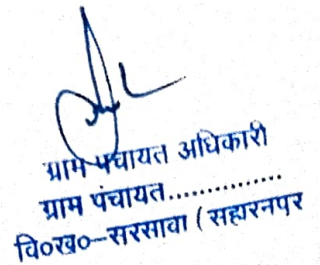 ग्राम पंचायत अधिकारी
ग्राम पंचायत...............
वि०ख०-सरसावा ( सहारनपर